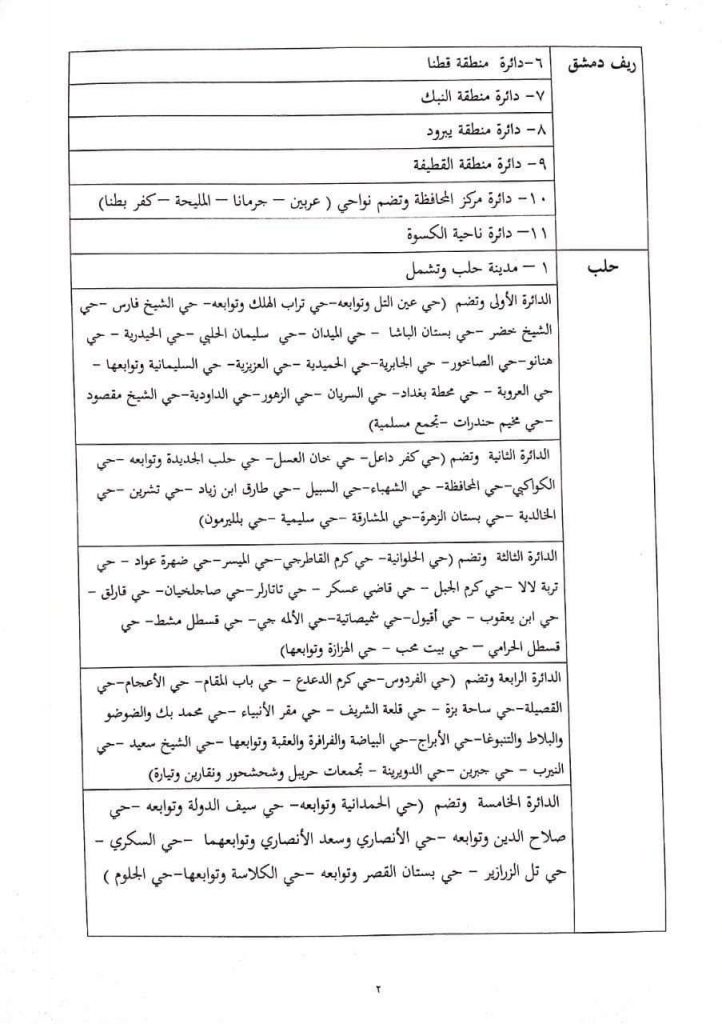 ريف دمشق
٦-دائرة منطقة قطنا
٧- دائرة منطقة النبك
٨- دائرة منطقة يبرود
٩- دائرة منطقة القطيفة
١٠- دائرة مركز المحافظة وتضم نواحي ( عربين – جرمانا – المليحة –كفر بطنا)
١١- دائرة ناحية الكسوة
حلب
١ – مدينة حلب وتشمل
الدائرة الأولى وتضم (حي عين التل وتوابعه-حي تراب الهلك وتوابعه- حي الشيخ فارس –حي
الشيخ خضر –حي بستان الباشا – حي الميدان – حي سليمان الحلبي – حي الحيدرية – حي
هنانو-حي الصاخور – حي الجابرية-حي الحميدية – حي العزيزية- حي السليمانية وتوابعها –
حي العروبة – حي محطة بغداد- حي السريان –حي الزهور-حي الداودية-حي الشيخ مقصود
–حي مخيم حندرات –تجمع مسلمية)
الدائرة الثانية وتضم (حي كفر داعل- حي خان العسل- حي حلب الجديدة وتوابعه –حي
الكواكبي-حي المحافظة- حي الشهباء-حي السبيل – حي طارق ابن زياد –حي تشرين –حي
الخالدية – حي بستان الزهرة-حي المشارقة – حي سليمية –حي بلليرمون)
الدائرة الثالثة وتضم (حي الحلوانية- حي كرم القاطرجي-حي الميسر-حي ضهرة عواد – حي
تربة لالا –حي كرم الجبل – حي قاضي عسكر – حي تاتارلر-حي صاجلخيان- حي قارلق –
حي ابن يعقوب – حي أقيول-حي شميصاتية-حي الألمه جي- حي قسطل مشط- حي
قسطل الحرامي – حي بيت محب – حي الهزازة وتوابعها)
الدائرة الرابعة وتضم (حي الفردوس-حي كرم الدعدع – حي باب المقام- حي الأعجام-حي
القصيلة-حي ساحة بزة – حي قلعة الشريف – حي مقر الأنبياء – حي محمد بك والضوضو
والبلاط والتنبوغا-حي الأبراج-حي البياضة والفرافرة والعقبة وتوابعها – حي الشيخ سعيد –حي
النيرب – حي جبرين –حي الدويرينة – تجمعات حريبل وشحشحور ونقارين وتيارة)
الدائرة الخامسة وتضم (حي الحمدانية وتوابعه- حي سيف الدولة وتوابعه –حي
صلاح الدين وتوابعه –حي الأنصاري وسعد الأنصاري وتوابعهما –حي السكري –
حي تل الزرازير – حي بستان القصر وتوابعه –حي الكلاسة وتوابعها-حي الجلوم )
٢